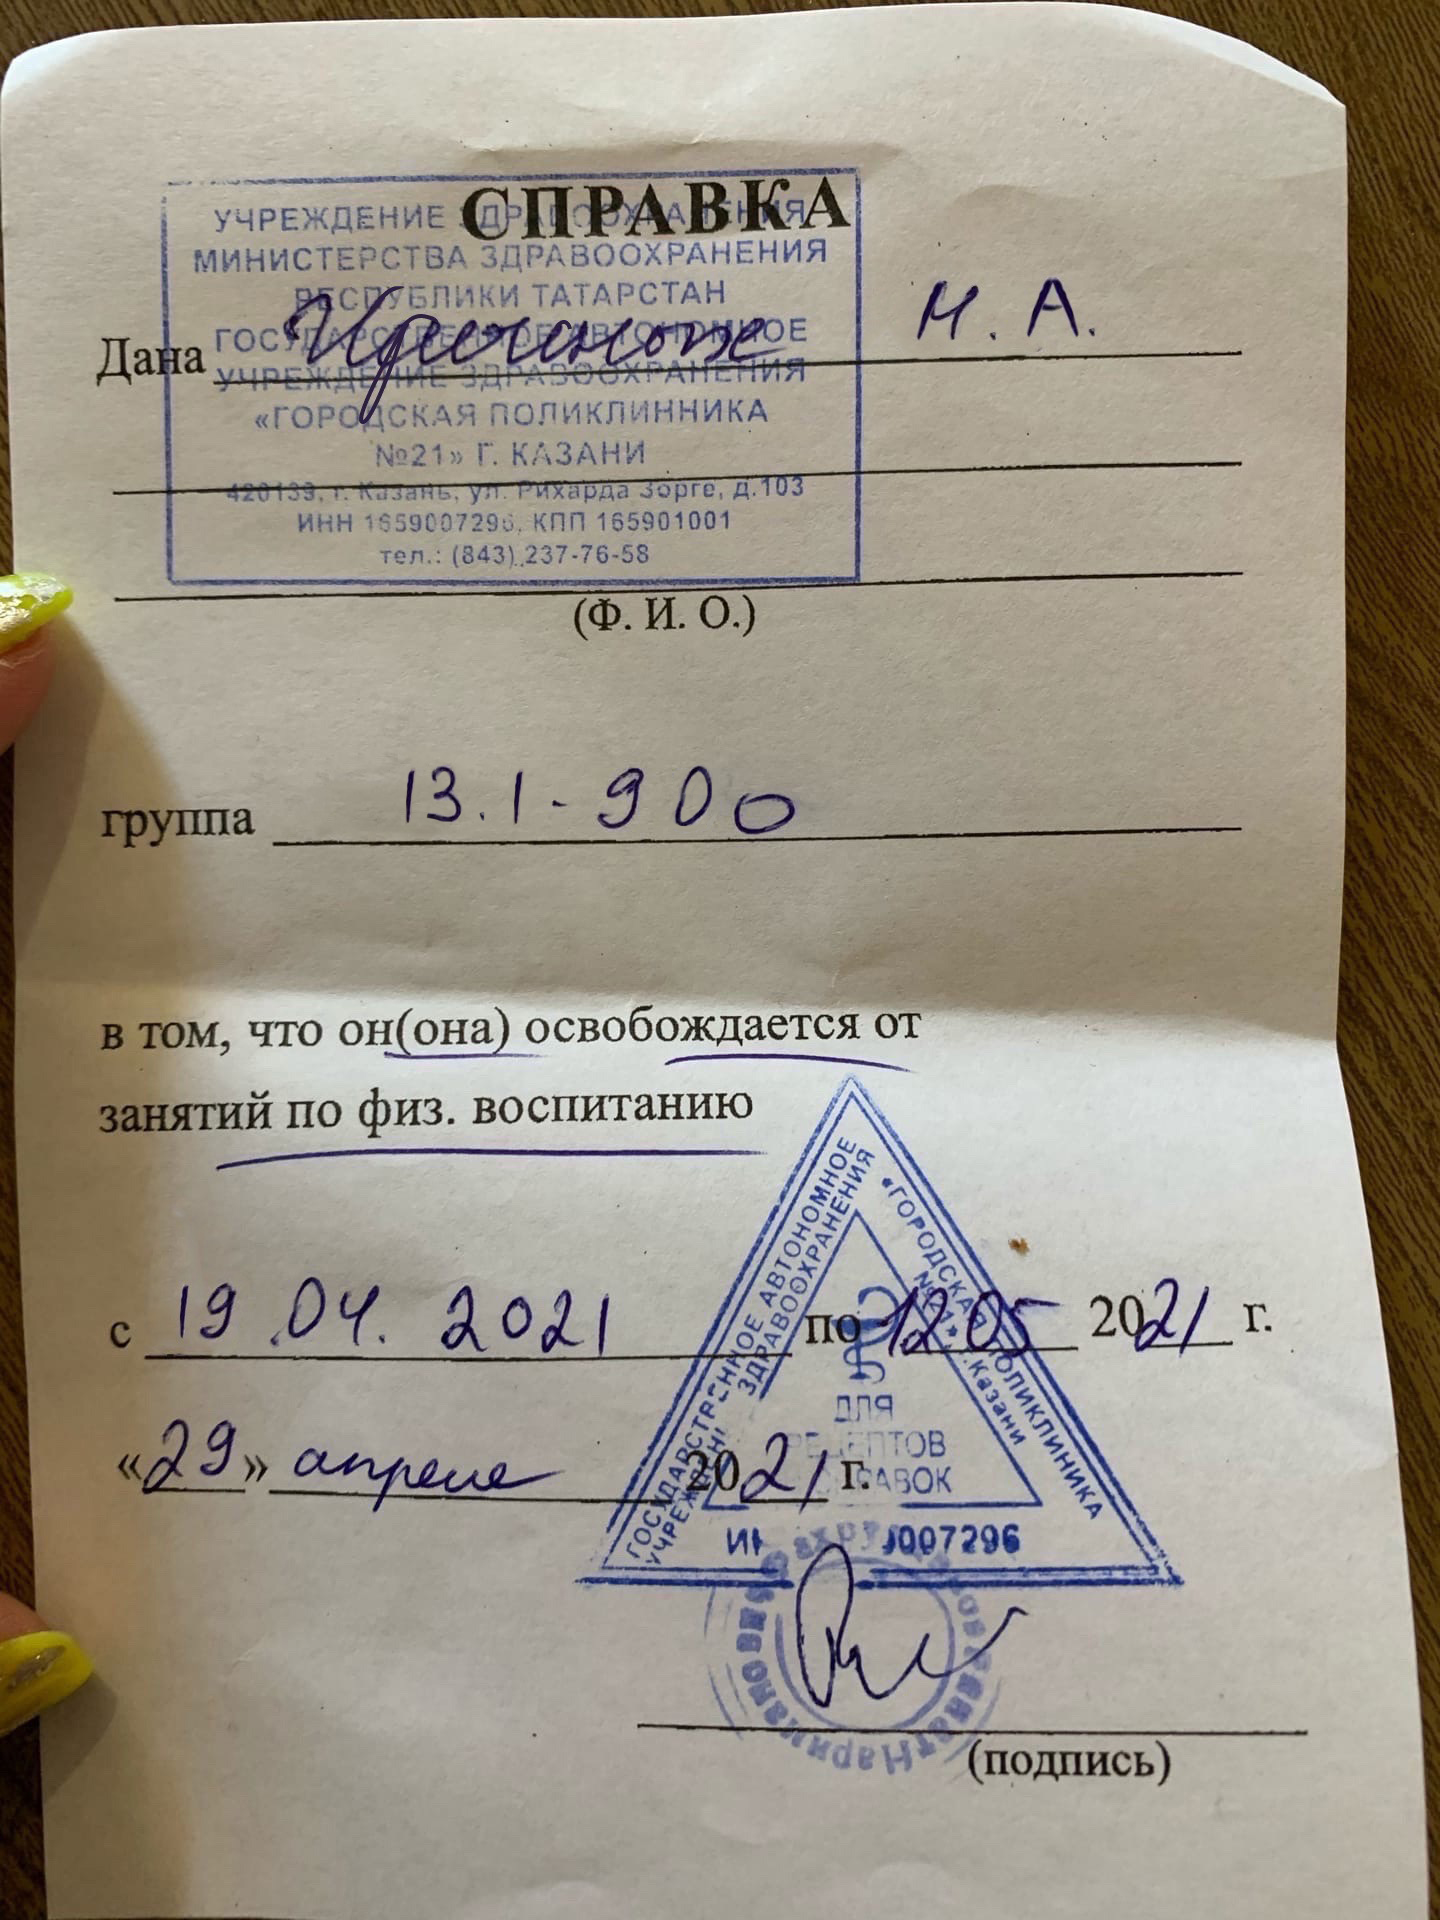 СПРАВКА
УЧРЕЖДЕНИЕ ЗДРАВООХРАНЕНИЯ
МИНИСТЕРСТВА ЗДРАВООХРАНЕНИЯ
РЕСПУБЛИКИ ТАТАРСТАН
ГОСУДАРСТВЕННОЕ АВТОНОМНОЕ
УЧРЕЖДЕНИЕ ЗДРАВООХРАНЕНИЯ
«ГОРОДСКАЯ ПОЛИКЛИННИКА
№21» Г. КАЗАНИ
420139, г. Казань, ул. Рихарда Зорге, д.103
ИНН 1659007296, КПП 165901001
тел.: (843) 237-76-58
Дана Н. А.
(Ф. И. О.)
группа 13.1-900
в том, что он(она) освобождается от
занятий по физ. воспитанию
с 19.04.2021 по 12.05 2021 г.
«29» апреля 2021 г.
ГОСУДАРСТВЕННОЕ АВТОНОМНОЕ
УЧРЕЖДЕНИЕ ЗДРАВООХРАНЕНИЯ
«ГОРОДСКАЯ ПОЛИКЛИННИКА
№21» г. Казани
ДЛЯ
РЕЦЕПТОВ
СПРАВОК
007296
(подпись)